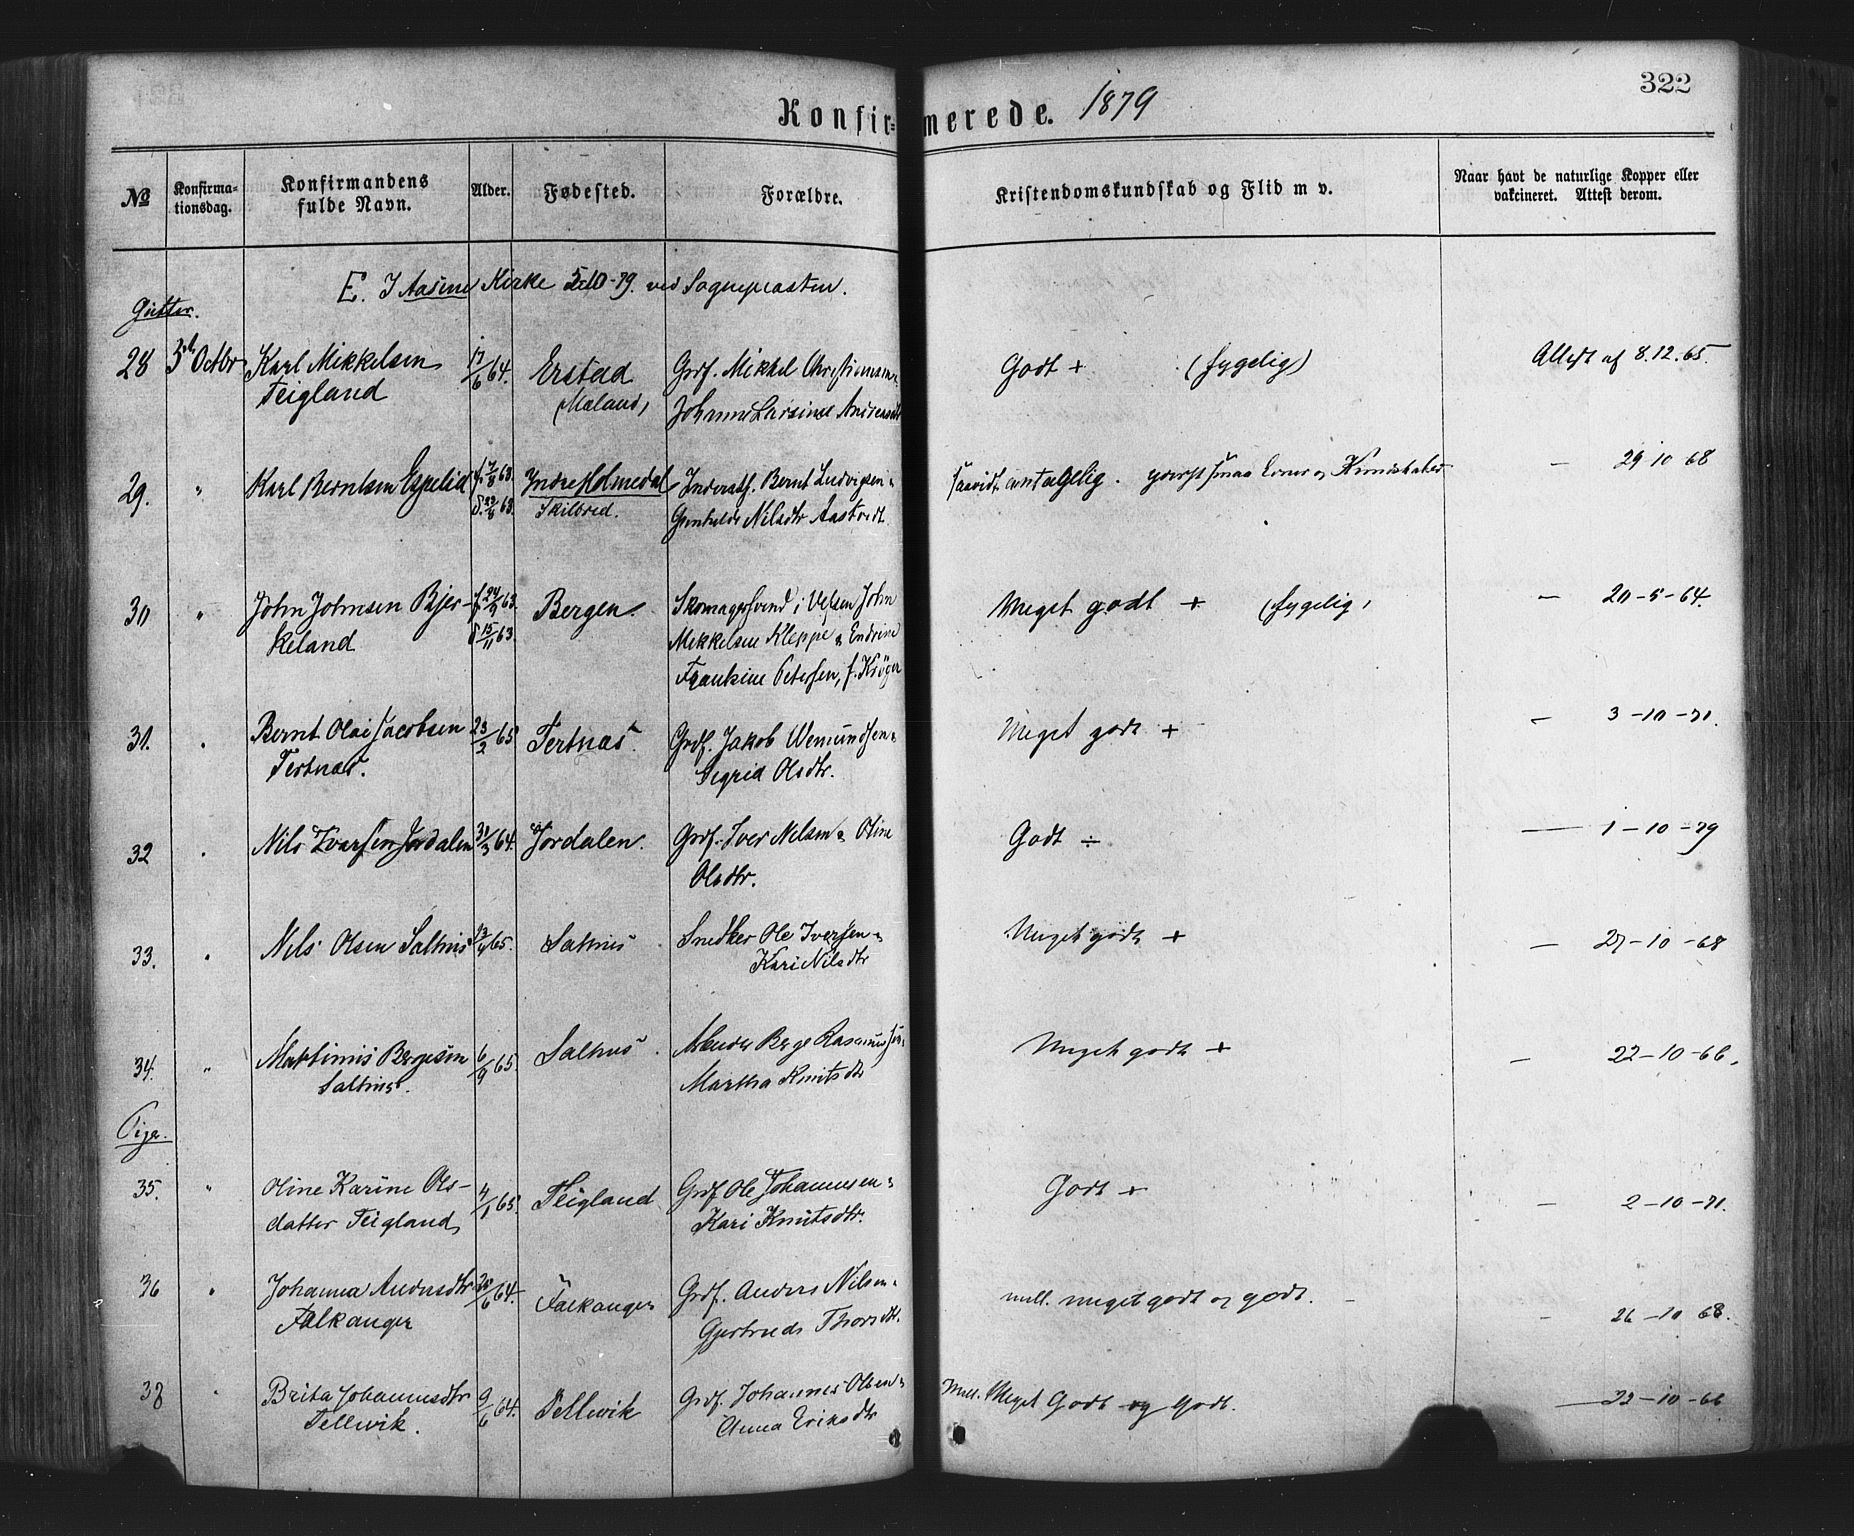 322
Konfirmerede. 1879
No
Konfirma-
tionsdag.
Konfirmandens
fulde Navn.
Alder.
Fødested.
Forældre.
Kristendomskundskab og Flid m v.
Naar havt de naturlige Kopper eller
vakcineret. Attest derom.
E. I Aasene Kirke 5-10-79. ved Sognepresten.
Gutter.
28 5te Octbr Karl Mikkelsen 17/6 64. Erstad Grdf. Mikkel Christiansen & Godt + (fygelig) Attest af 8.12.65
Teigland (Mæland) Johanne Larsine Andersdtr
29. " Karl Berntsen Espelid f. 7/8 63. Indre Holmedal Inderstf. Bernt Ludvigsen & saavidt antagelig. yderst smaa Evner og Kundskaber — 29-10-68
Skilbred. Nilsdtr Aastvedt
30 " John Johnsen Bjer- 63. Bergen Skomagersvend i John Meget godt + (fygelig) — 20-5-64.
keland d. 15/11 63. Mikkelsen Kleppe & Endrine
Petersen, f. Krøger
31. " Bernt Olai Jacobsen 23/2 65 Tertnæs. Grdf. Jakob Wemundsen & Meget godt + — 3-10-71.
Tertnæs. Sigrid Olsdtr.
32 " Nils Iversen Jordalen 31/3 64. Jordalen. Grdf. Iver Nilsen & Oline Godt ÷ — 1-10-79
Olsdtr.
33. " Nils Olsen Saltnis 65. Saltnis Snedker Ole Iversen & Meget godt + — 27-10-68
Kari Nilsdtr
34. " Martinus Bergesen 6/9 65. Saltnis Berge Rasmussen & Meget godt + — 22-10-66.
Saltnes. Martha Knutsdtr
Piger.
35. " Oline Karine Ols- 4/1 65. Teigland Grdf Ole Johannesen & Godt + — 2-10-71.
datter Teigland, Kari Knutsdtr.
36 " Johanna Andersdtr 64. Falkanger Grdf. Anders Nilsen & mell. meget godt og godt. — 26-10-68.
Falkanger Gjertrud Thorsdtr.
37 " Brita Johannesdtr 9/6 64. Tellevik Grdf. Johannes Olsen & Mell. Meget Godt og Godt. — 22-10-66
Tellevik. Anna Eriksdtr